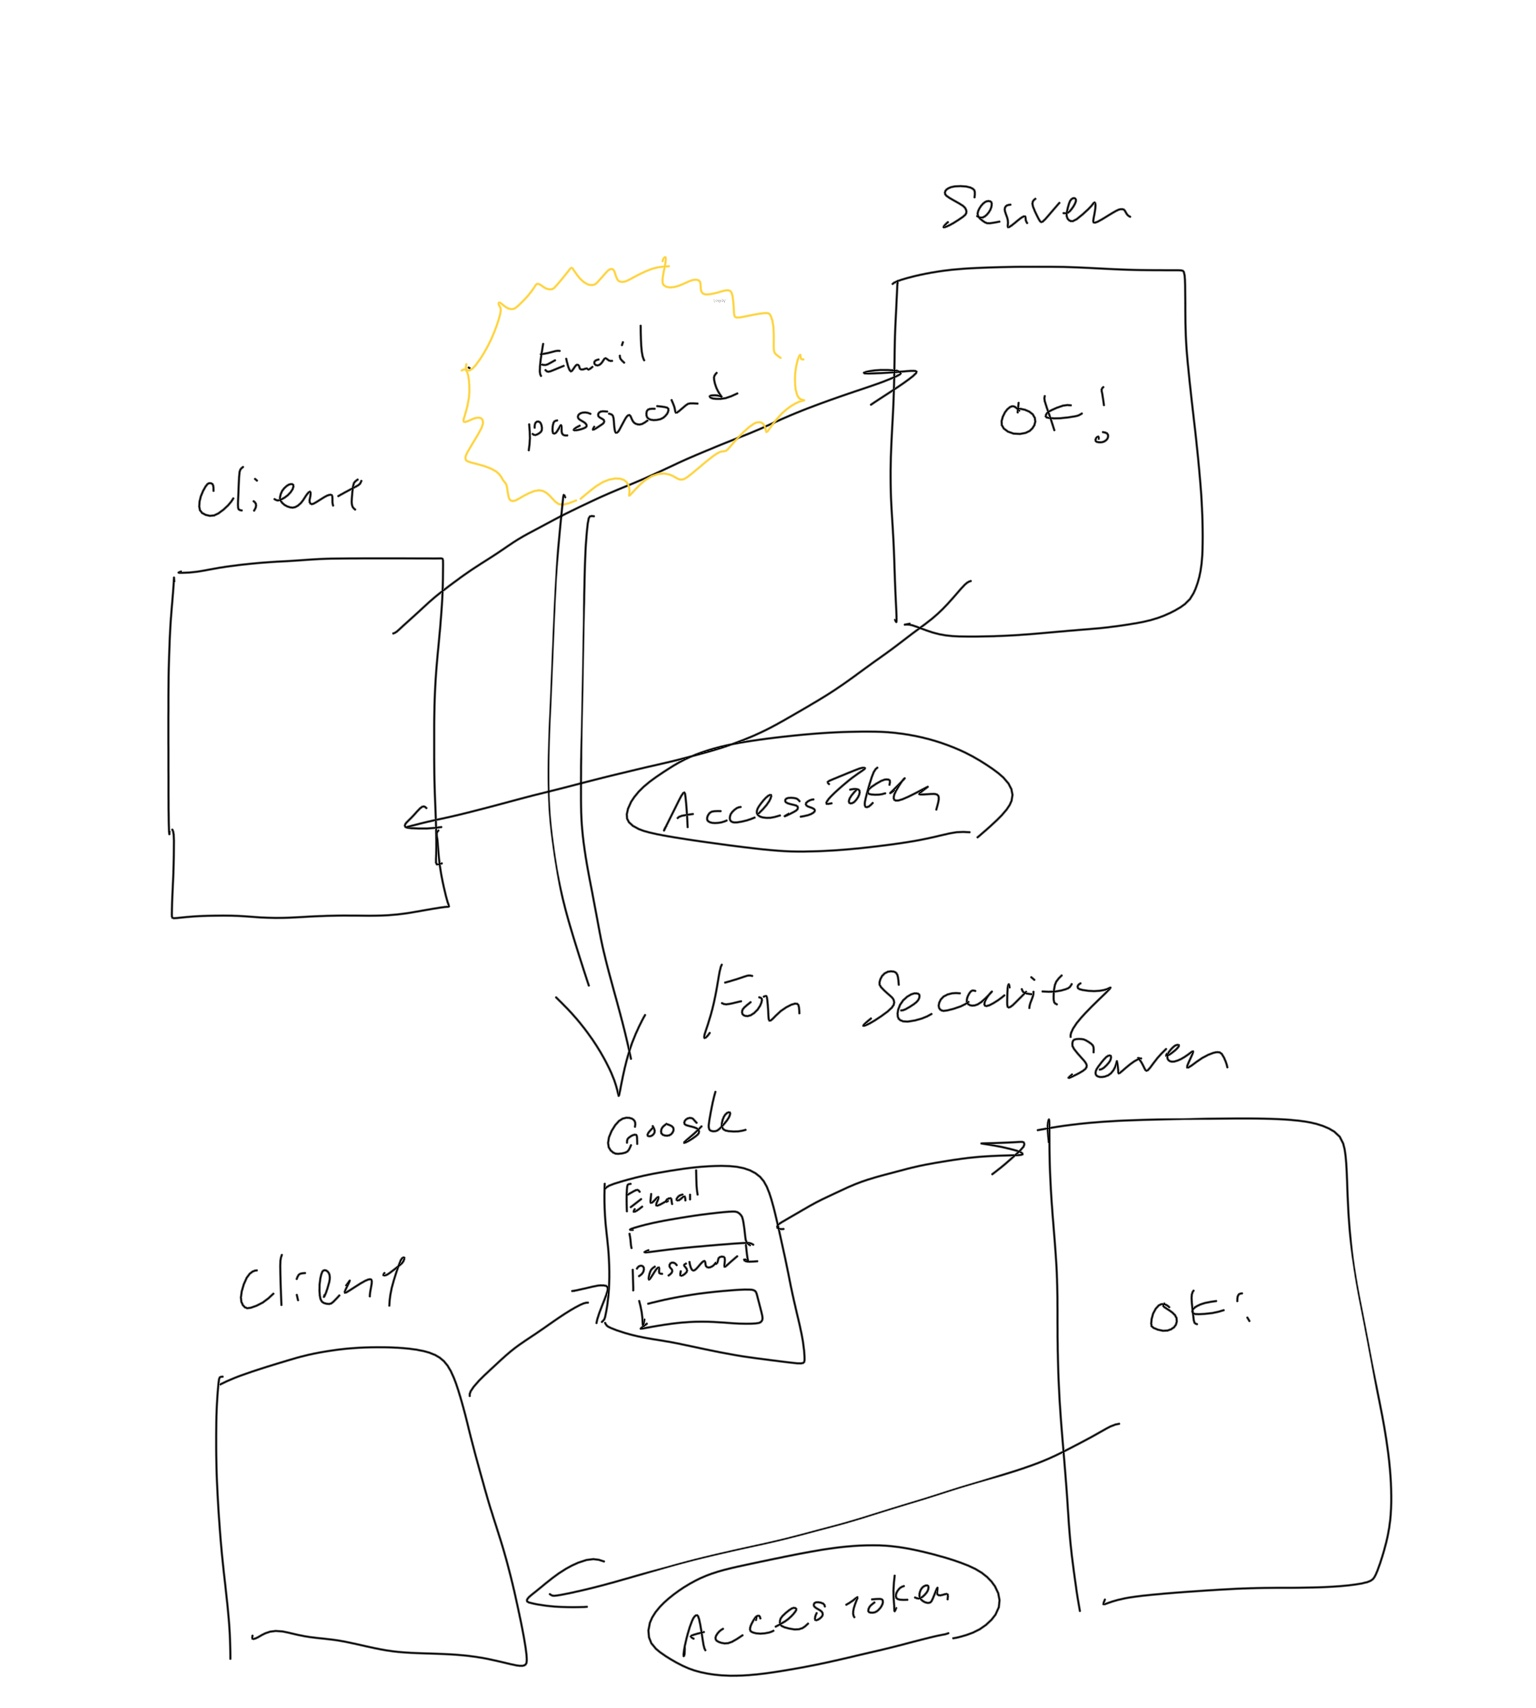 Server
Email
password
OK!
Client
Access Token
For Security
Server
Google
Email
password
Client
OK!
Acces Token